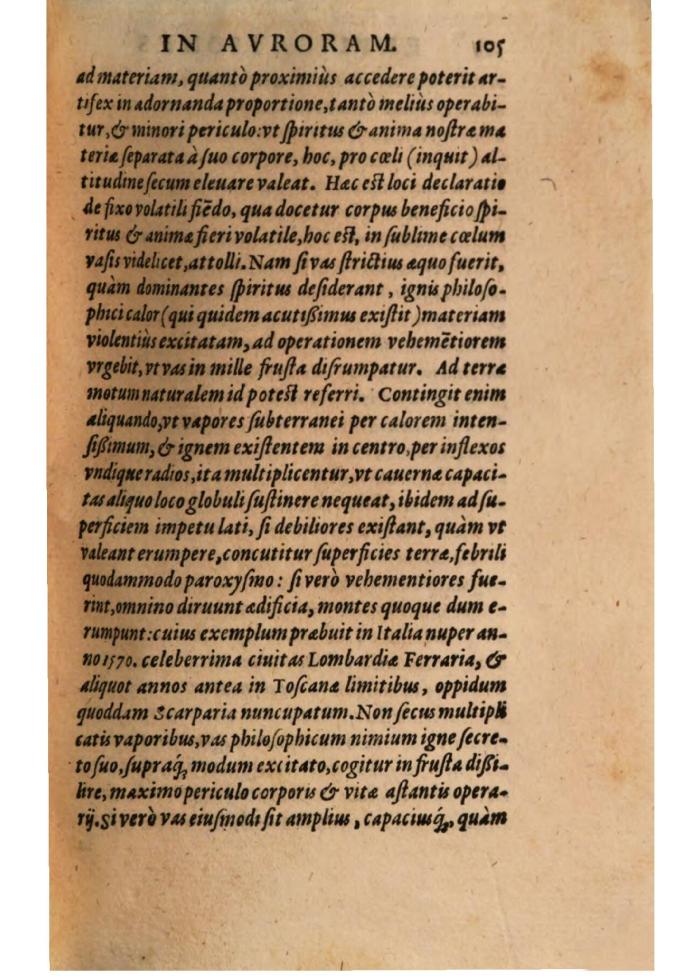 IN AVRORAM. 105
ad materiam, quantò proximiùs accedere poterit ar-
tifex in adornanda proportione, tantò meliùs operabi-
tur, & minori periculo: vt ſpiritus & anima noſtræ ma
teriæ ſeparata à ſuo corpore, hoc, pro cœli (inquit) al-
titudine ſecum eleuare valeat. Hæc eſt loci declaratio
de fixo volatili fiẽdo, qua docetur corpus beneficio ſpi-
ritus & animæ fieri volatile, hoc eſt, in ſublime cœlum
vaſis videlicet, attolli. Nam ſi vas ſtrictius æquo fuerit,
quàm dominantes ſpiritus deſiderant, ignis philoſo-
phici calor (qui quidem acutißimus exiſtit) materiam
violentiùs excitatam, ad operationem vehemẽtiorem
vrgebit, vt vas in mille fruſta diſrumpatur. Ad terræ
motum naturalem id poteſt referri. Contingit enim
aliquando, vt vapores ſubterranei per calorem inten-
ſißimum, & ignem exiſtentem in centro, per inflexos
vndique radios, ita multiplicentur, vt cauernæ capaci-
tas aliquo loco globuli ſuſtinere nequeat, ibidem ad ſu-
perficiem impetu lati, ſi debiliores exiſtant, quàm vt
valeant erumpere, concutitur ſuperficies terræ, febrili
quodammodo paroxyſmo: ſi verò vehementiores fue-
rint, omnino diruunt ædificia, montes quoque dum e-
rumpunt: cuius exemplum præbuit in Italia nuper an-
no 1570. celeberrima ciuitas Lombardiæ Ferraria, &
aliquot annos antea in Toſcanæ limitibus, oppidum
quoddam Scarparia nuncupatum. Non ſecus multipli
catis vaporibus, vas philoſophicum nimium igne ſecre-
to ſuo, ſupraq́; modum excitato, cogitur in fruſta dißi-
lire, maximo periculo corporis & vitæ aſtantis opera-
rij. Si verò vas eiuſmodi ſit amplius, capaciusq́;, quàm